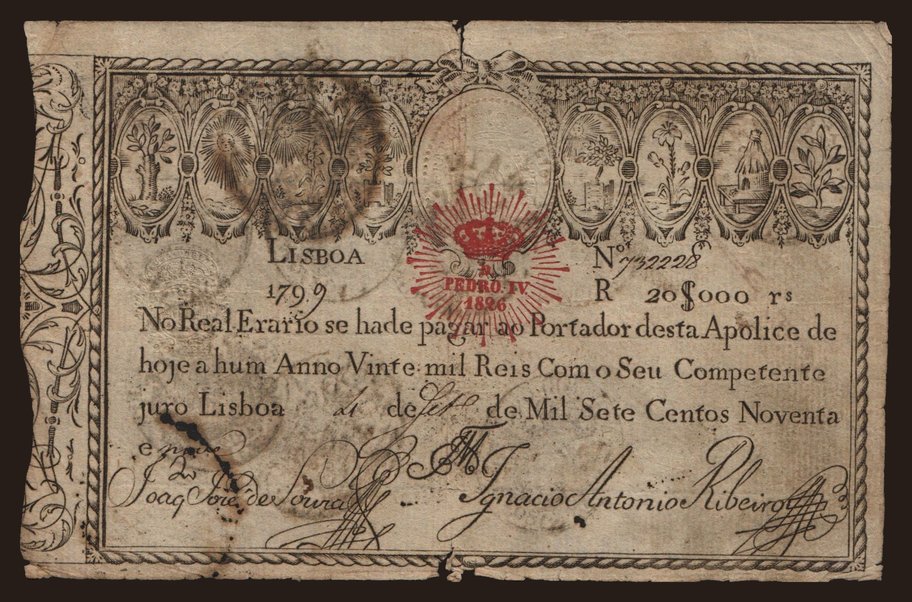 LISBOA
Nº 732228
1799
R 20$000 rs
D.
PEDRO. IV
1826
No Real Erario se hade pagar ao Portador desta Apolice de
hoje a hum Anno Vinte mil Reis Com o Seu Competente
juro Lisboa 4 de de Mil Sete Centos Noventa
e nove
Joaq José de Souza
Ignacio Antonio Ribeiro